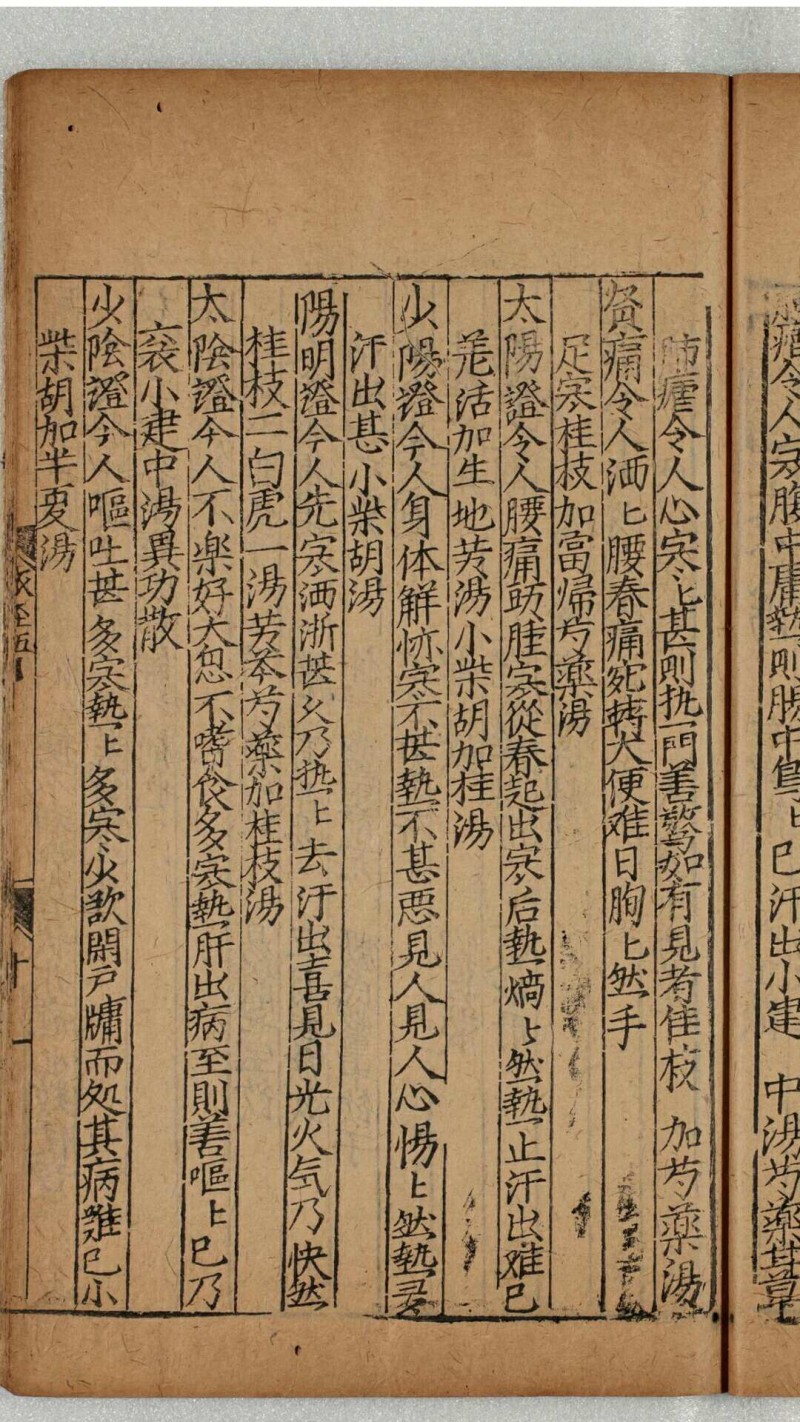 瘧令人寒腹中痛熱則腸中鳥〻已汗出小建　中湯芍藥甘草
肺瘧令人心寒〻甚則热一門善驚如有見者佳枝　加芍藥湯
痛令人洒〻腰舂痛宛轉大便难日朐〻然手
足寒桂枝加當帰芍藥湯
太陽證令人腰痛頭腫寒從春起出寒后熱熇〻然熱止汗出难已
羗活加生地芩湯小柴胡加桂湯
少陽證令人身体解㑊寒不甚熱不甚悪見人見人心惕〻然熱多
汗出甚小柴胡湯
陽明證令人先寒洒浙甚久乃热〻去汗出喜見日光火気乃快然
桂枝二白虎一湯芩芍藥加桂枝湯
太陰證令人不楽好大息不嗜食多寒熱肝出病至則善嘔〻已乃
衮小建中湯異功散
少陰證今人嘔吐甚多寒熱〻多寒少欲閉戸牖而処其病难已小
柴胡加半夏湯
十一